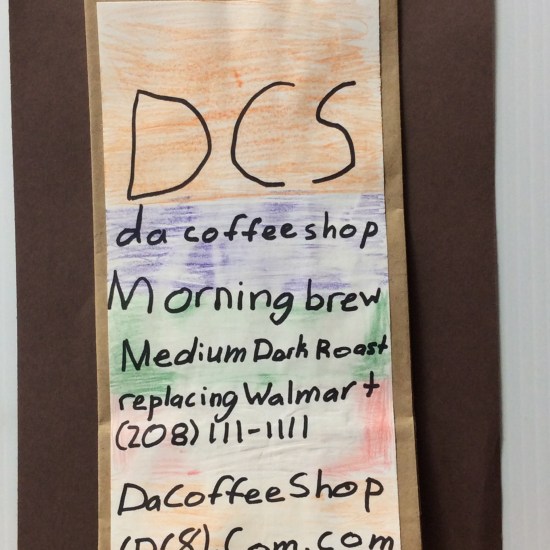 DCS
da coffee shop
Morning brew
Medium Dark Roast
replacing Walmart
(208) 111-1111
DaCoffeeShop
(DC8).Com.com